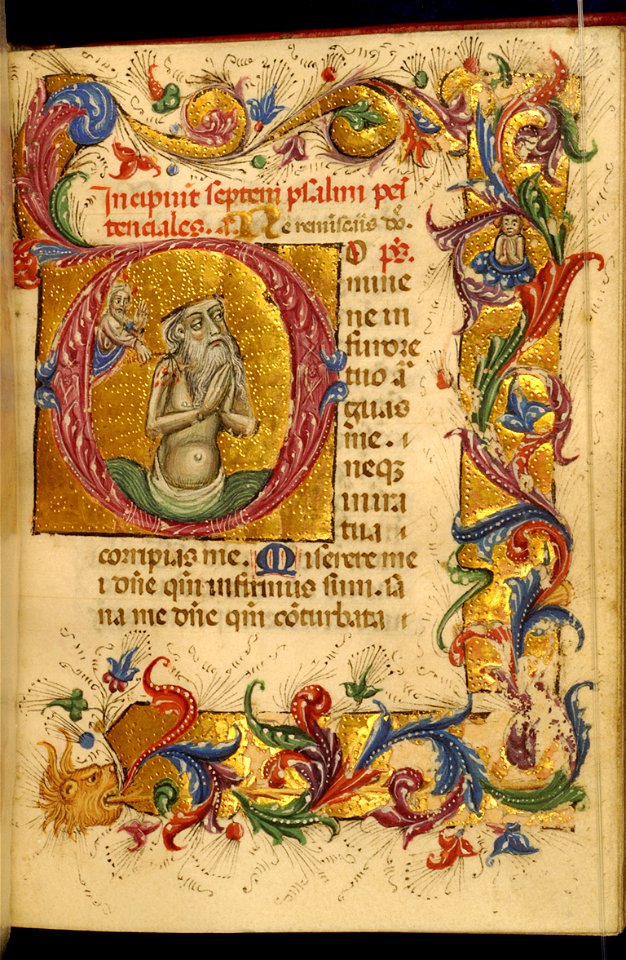 Incipiut septem psalmi pei
tenciales. a. Ne remiscīis dō.
DO ps̄.
mine
ne in
furore
tuo ā
guas
me. i
neqz
in ira
tua
corripias me. Miserere me
i dn̄e qm̄ infirmus sum. sa
na me dn̄e qm̄ cōturbata